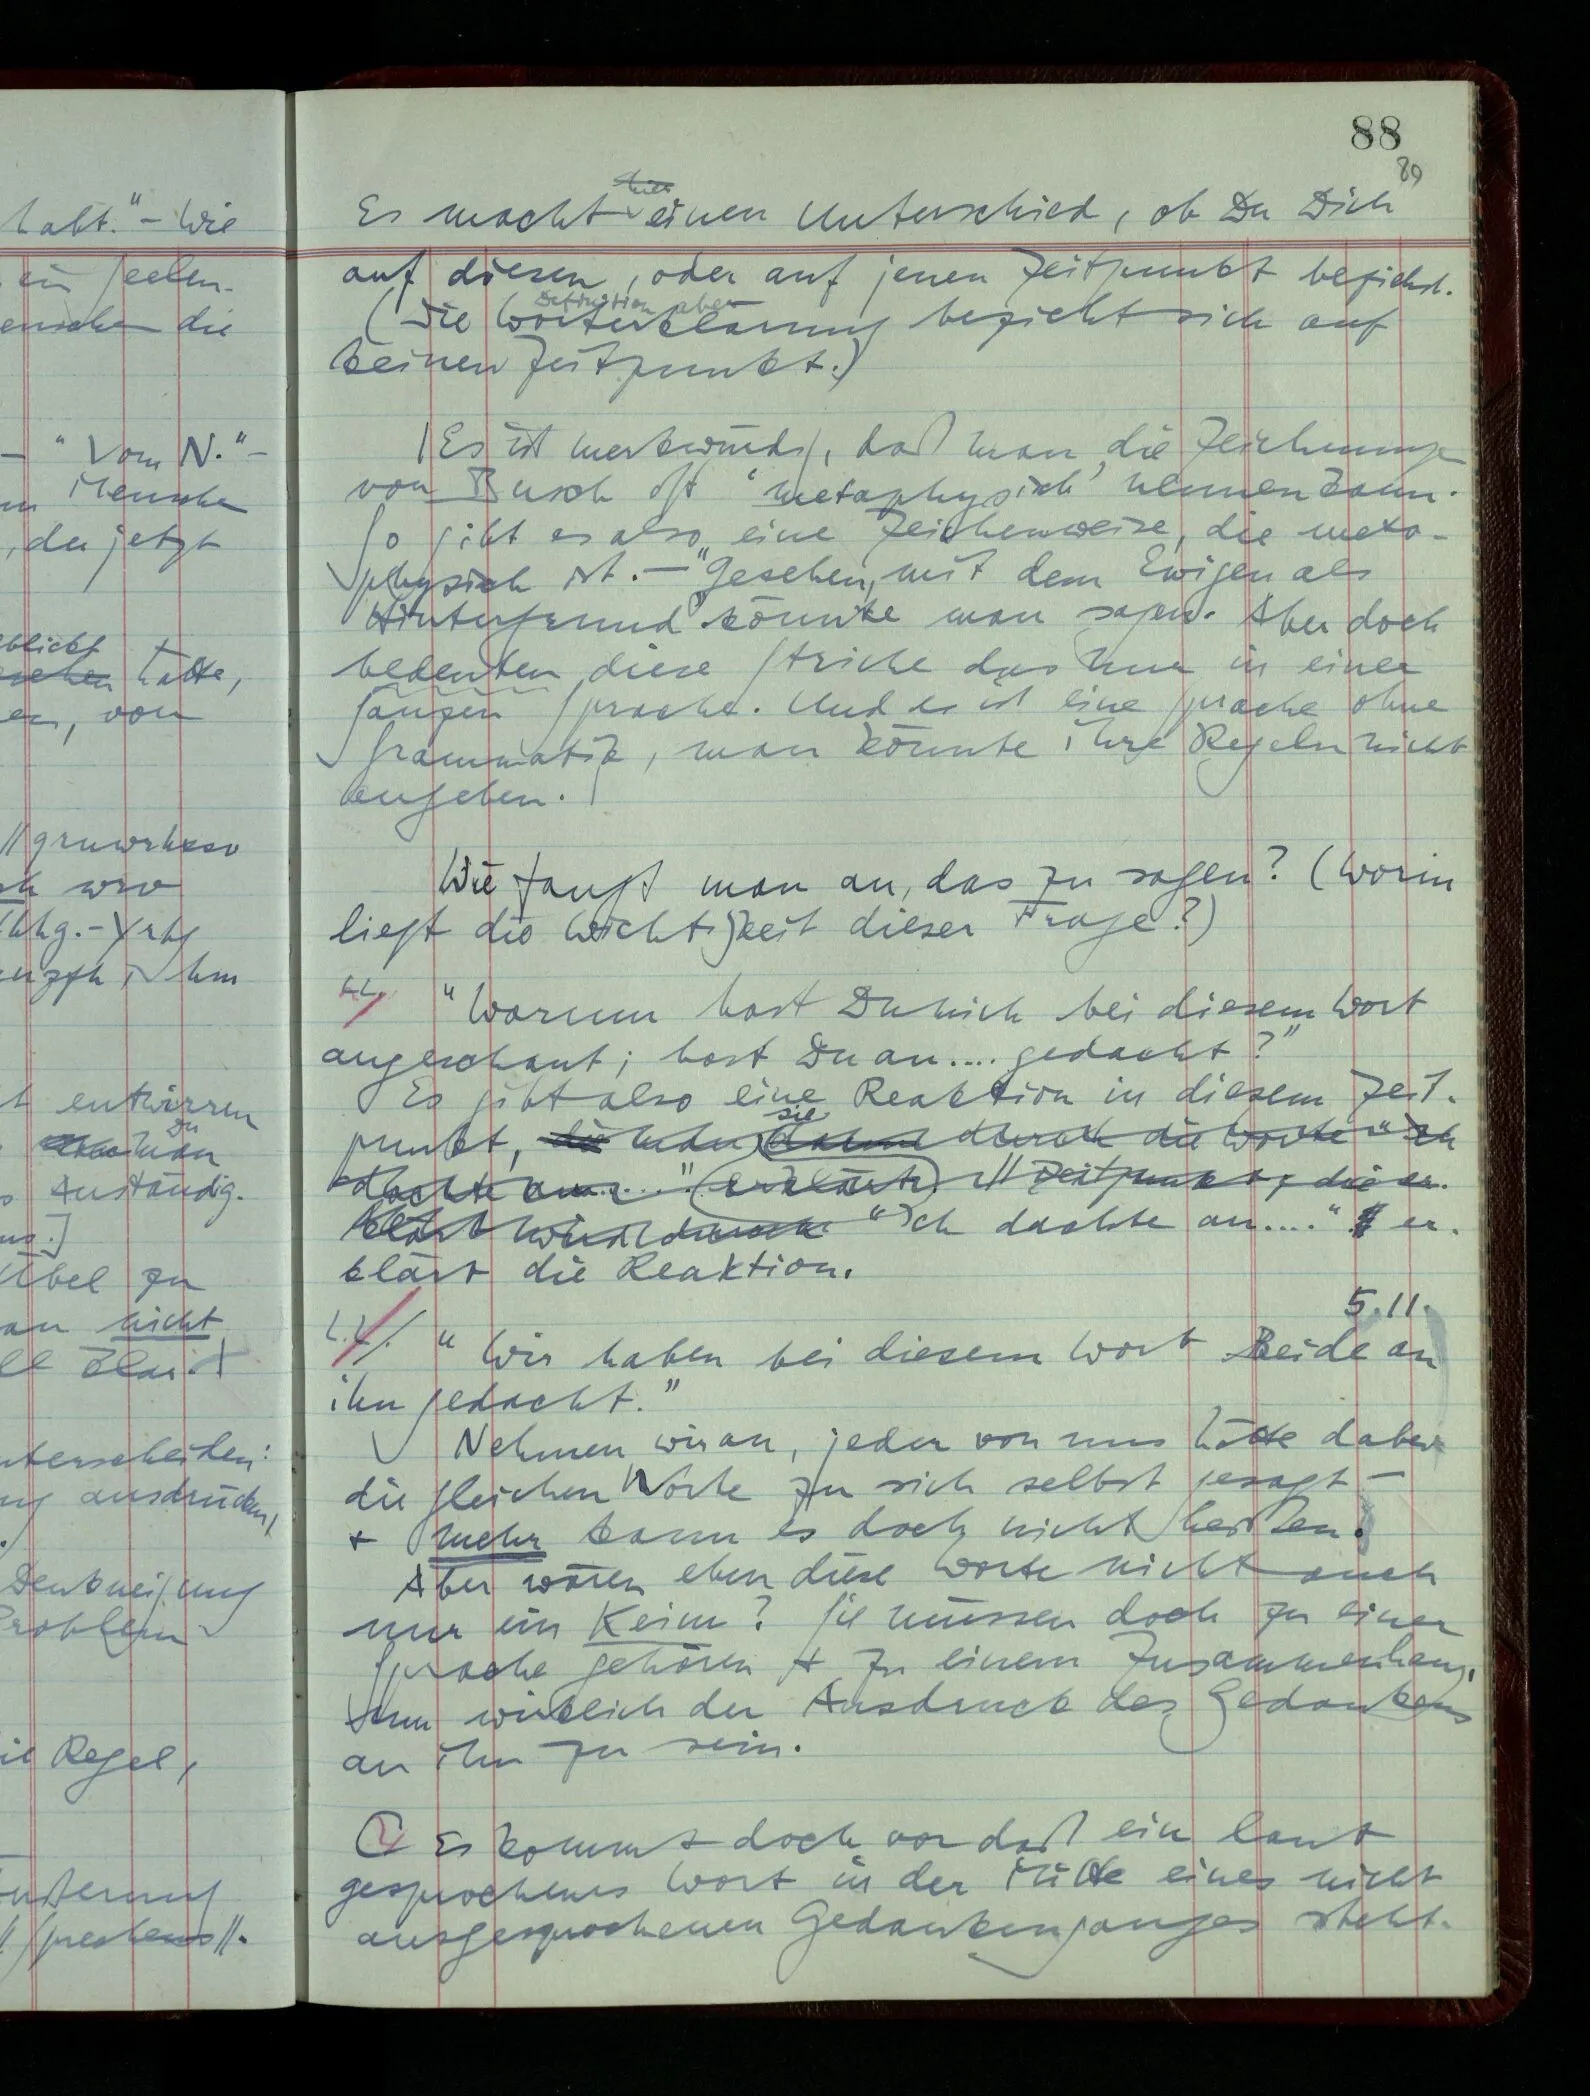 88
89
hier
Es macht einen Unterschied, ob Du Dich
auf diesen, oder auf jenen Zeitpunkt beziehst.
Definition aber
(Die Worterklärung bezieht sich auf
keinen Zeitpunkt.)
Es ist merkwürdig, daß man die Zeichnungen
von Busch oft 'metaphysisch' nennen kann.
So gibt es also eine Zeichenweise, die meta-
physisch ist. — "Gesehen, mit dem Ewigen als
Hintergrund" könnte man sagen. Aber doch
bedeuten diese Striche das nur in einer
ganzen Sprache. Und es ist eine Sprache ohne
Grammatik, man könnte ihre Regeln nicht
angeben.
Wie fängt man an, das zu sagen? (Worin
liegt die Wichtigkeit dieser Frage?)
"Warum hast Du mich bei diesem Wort
angeschaut; hast Du an .... gedacht?"
Es gibt also eine Reaktion in diesem Zeit-
sie
punkt, die durch die Worte "Ich
dachte an ...." erklärt // Zeitpunkt, die er-
klärt wird durch "Ich dachte an ...." er-
klärt die Reaktion.
5.11.
"Wir haben bei diesem Wort Beide an
ihn gedacht."
Nehmen wir an, jeder von uns hätte dabei
die gleichen Worte zu sich selbst gesagt —
+ mehr kann es doch nicht heißen.
Aber wären eben diese Worte nicht auch
nur ein Keim? Sie müssen doch zu einer
Sprache gehören + zu einem Zusammenhang,
um wirklich der Ausdruck des Gedankens
an ihn zu sein.
Es kommt doch vor daß ein laut
gesprochenes Wort in der Mitte eines nicht
ausgesprochenen Gedankenganges steht.
habt." – Wie
ein Seelen-
die
– "Vom N." –
Mensche
, der jetzt
hatte,
, von
entwirren
Du
man
Anständig.
Übel zu
nicht
ausdrücken,
Denkneigung
Problem
Regel,